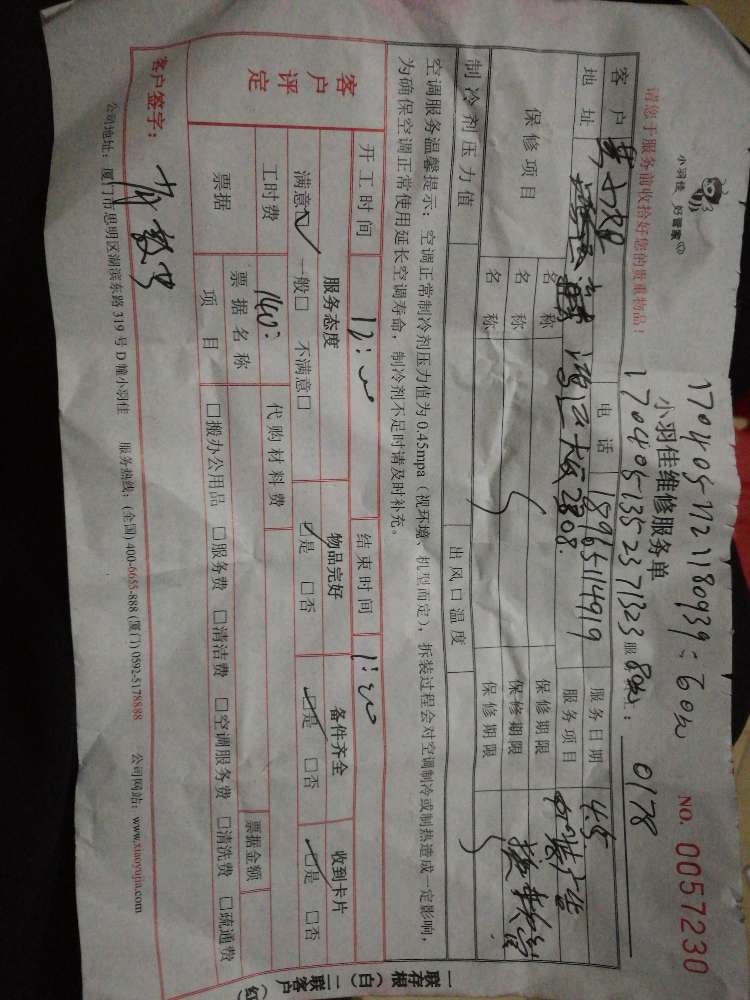 小羽佳 好管家
请您于服务前收拾好您的贵重物品！
1704051121180939：60元
小羽佳维修服务单
1704051352371323 80元
NO. 0057230
服 0178
客户 电话 18965114919 服务日期 4.5
地址 2808. 服务项目
保修项目 名称 保修期限
名称 保修期限 换软管
名称 保修期限
制冷剂压力值 出风口温度
空调服务温馨提示：空调正常制冷剂压力值为0.45mpa（视环境、机型而定），拆装过程会对空调制冷或制热造成一定影响，
为确保空调正常使用延长空调寿命，制冷剂不足时请及时补充。
开工时间 12:00 结束时间 1:20
客户评定 服务态度 物品完好 备件齐全 收到卡片
满意☑ 一般□ 不满意□ ☑是 □否 ☑是 □否 ☑是 □否
工时费 140 代购材料费
票据 票据名称 票据金额
项目 □搬办公用品 □服务费 □清洁费 □空调服务费 □清洗费 □疏通费
客户签字：
公司地址：厦门市思明区湖滨东路319号D幢小羽佳 服务热线：(全国) 400-6655-888 (厦门) 0592-5178888 公司网站：www.xiaoyujia.com
一联存根（白）二联客户（红